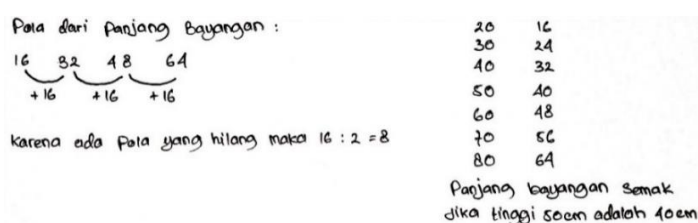 Pola dari Panjang Bayangan :
16 32 48 64
+ 16 + 16 + 16
Karena ada Pola yang hilang maka 16 : 2 = 8
20 16
30 24
40 32
50 40
60 48
70 56
80 64
Panjang bayangan Semak
Jika tinggi 50cm adalah 40cm